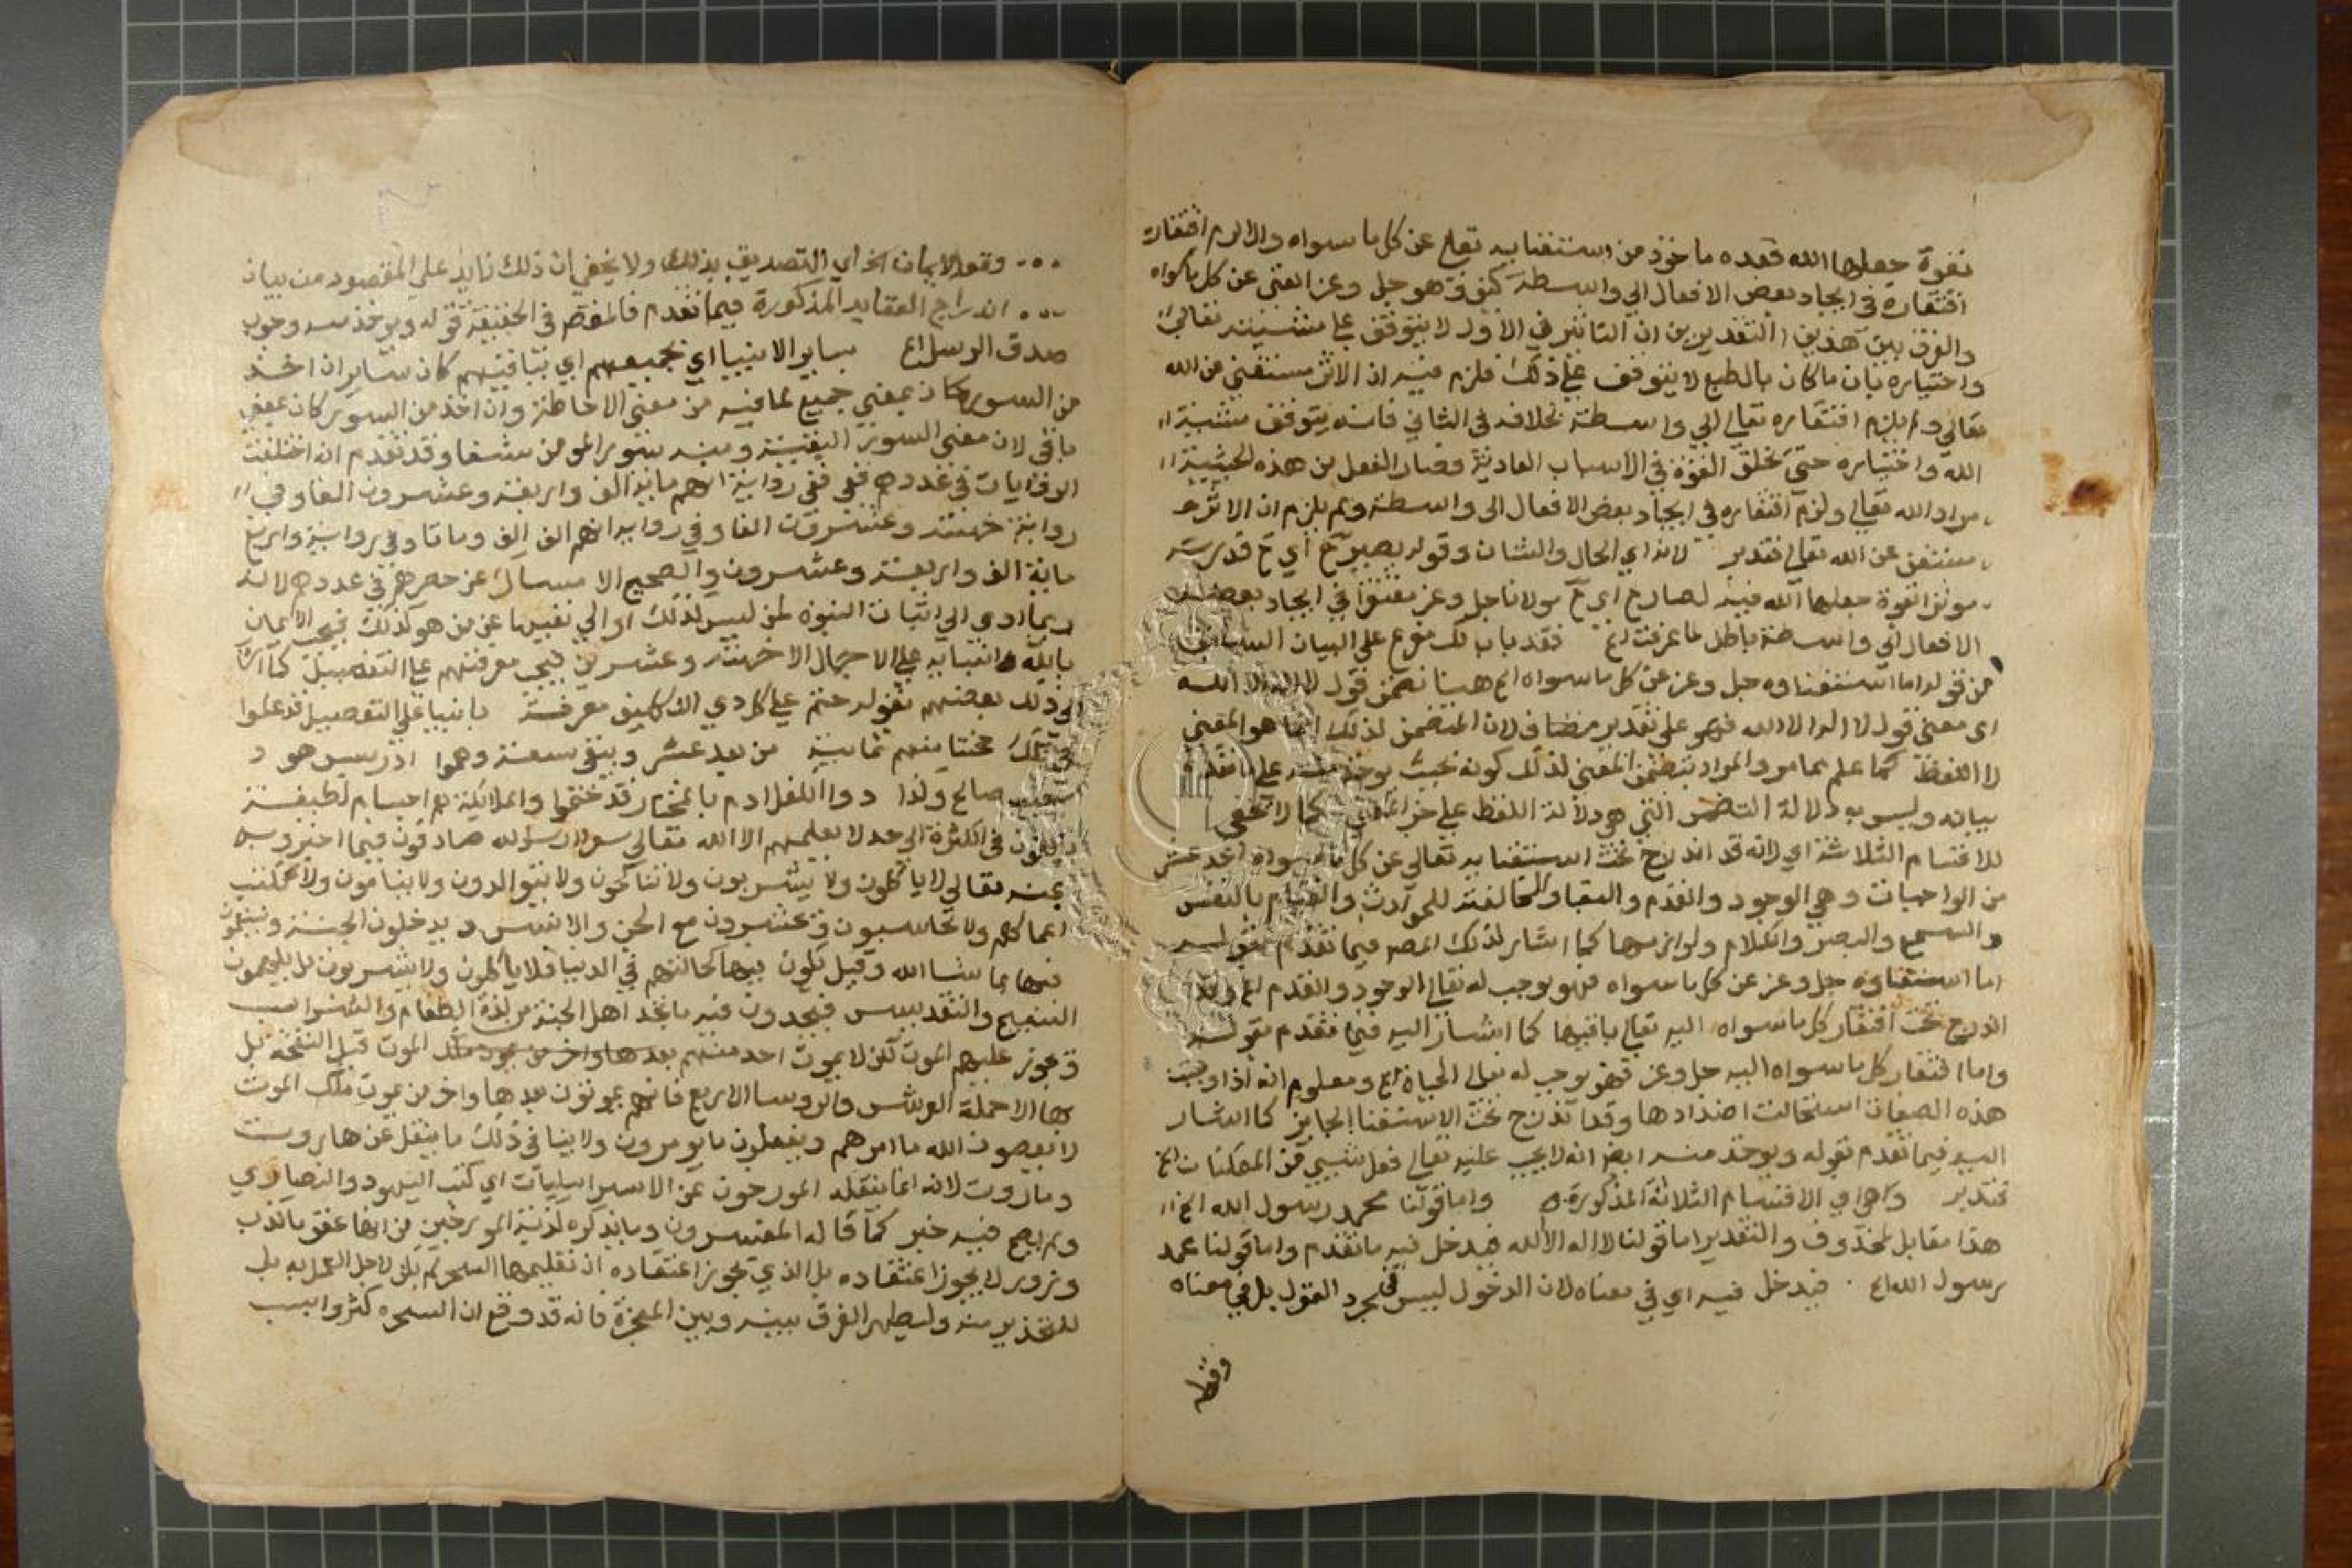 بقوة جعلها الله فقده ماخوذ من استغنايه تعالى عن كل ما سواه والا لزم افتقار
افتقاره في ايجاد بعض الافعال الي واسطة كيف وهو جل وعز الغني عن كل ما سواه
والفرق بين هذين التقديرين ان التاثير في الاول لا يتوقف على مشيئته تعالى
واختياره بان ما كان بالطبع لا يتوقف على ذلك فلزم فيه ان الاثر مستغني عن الله
تعالى ولم يلزم افتقاره تعالى الي واسطة بخلافه في الثاني فانه يتوقف مشيئة
الله واختياره حتى يخلق القوة في الاسباب العادية فصار الفعل من هذه الحيثية
مراد الله تعالى ولزم افتقاره في ايجاد بعض الافعال الى واسطة ولم يلزم ان الاثر
مستغن عن الله تعالى فتدبر لانه اي الحال والشان وقوله يصير ح اي ح قدرت
موثرا بقوة جعلها الله فيه لصار ح اي ح مولانا جل وعز مفتقرا في ايجاد بعض
الافعال الي واسطة باطل لما عرفت الخ فقد بان لك مفرع على البيان السابق
من قوله اما استغناوه جل وعز عن كل ما سواه الخ هنا تضمن قول لا اله الا الله
اى معنى قول لا اله الا الله فهو على تقدير مضاف لان المتضمن لذلك انما هو المعني
لا اللفظ كما علم مما مر والمراد بتضمن المعني لذلك كونه بحيث يوخذ منه على ما تقدم
بيانه وليس به دلالة التضمن التي هي دلالة اللفظ على جز المعني كما لا يخفي
للاقسام الثلاثة اي لانه قد اندرج تحت استغنايه تعالى عن كل ما سواه احد عشر
من الواجبات وهي الوجود والقدم والبقا والمخالفة للحوادث والقيام بالنفس
والسمع والبصر والكلام ولوازمها كما اشار لذلك المصر فيما تقدم بقوله
اما استغناوه جل وعز عن كل ما سواه فهو يوجب له تعالى الوجود والقدم الخ
اندرج تحت افتقار كل ما سواه اليه تعالى باقيها كما اشار اليه فيما تقدم بقوله
واما افتقار كل ما سواه اليه جل وعز فهو يوجب له تعالى الحياة الخ ومعلوم انه اذا وجبت
هذه الصفات استحالت اضدادها وقد اندرج تحت الاستغنا الجايز كما اشار
اليه فيما تقدم بقوله ويوخذ منه ايضا انه لا يجب عليه تعالى فعل شيي من الممكنات الخ
فتدبر وهي اي الاقسام الثلاثة المذكورة واما قولنا محمد رسول الله الخ
هذا مقابل لمحذوف والتقدير اما قولنا لا اله الا الله فيدخل فيه ما تقدم واما قولنا محمد
رسول الله الخ فيدخل فيه اي في معناه لان الدخول ليس في مجرد القول بل في معناه
وقوله الايمان الخ اي التصديق بذلك ولا يخفي ان ذلك زايد علي المقصود من بيان
اندراج العقايد المذكورة فيما تقدم فالمقصود في الحقيقة قوله ويوخذ منه وجوب
صدق الرسل الخ بساير الانبيا اي بجميعهم اي بباقيهم كان ساير ان اخذ
من السور كان بمعني جميع لما فيه من معني الاحاطة وان اخذ من السور كان بمعني
باقي لان معني السور البقية ومنه سور المومن شفا وقد تقدم انه اختلفت
الروايات في عددهم ففي رواية انهم ماية الف واربعة وعشرون الفا وفي
رواية خمسة وعشرون الفا وفي رواية انهم الف الف وماتا وفي رواية واربع
ماية الف واربعة وعشرون والصحيح الامساك عن حصرهم في عدد لانه
ربما ادى الي اثبات النبوه لمن ليس كذلك او الي نفيها عن من هو كذلك فيجب الايمان
بالله وانبيايه علي الاجمال الا خمسة وعشرين فيجب معرفتهم على التفصيل كما اشار
الي ذلك بعضهم بقوله حتم علي كل ذي التكليف معرفة بانبيا علي التفصيل قد علموا
في تلك حجتنا منهم ثمانية من بعد عشر ويبقي سبعة وهموا ادريس هود
شعيب صالح وكذا ذوا الكفل ادم بالمختار قد ختموا والملايكة هم اجسام لطيفة
بالغون في الكثرة الى حد لا يعلمهم الا الله تعالى سوا رسل الله صادقون فيما اخبروا به
عنه تعالى لا ياكلون ولا يشربون ولا يتناكحون ولا يتوالدون ولا ينامون ولا تكتب
اعمالهم ولا يحاسبون ويحشرون مع الجن والانس ويدخلون الجنة ويتنعمون
فيها بما شا الله وقيل يكونون فيها كحالتهم في الدنيا فلا ياكلون ولا يشربون بل يلهمون
التسبيح والتقديس فيجدون فيه ما يجد اهل الجنة من لذة الطعام والشراب
ويجوز عليهم الموت لكن لا يموت احد منهم بعدها واخر من يموت ملك الموت قبل النفخة بل
بها الا حملة العرش والروسا الاربع فانهم يموتون بعدها واخر من يموت ملك الموت
لا يعصون الله ما امرهم ويفعلون ما يومرون ولا ينافي ذلك ما ينقل عن هاروت
وماروت لانه انما ينقله المورخون عن الاسرايليات اي كتب اليهود والنصاري
ولم يصح فيه خبر كما قاله المفسرون وما يذكره كذبة المورخين من انهما عوقبا كذب
وزور لا يجوز اعتقاده بل الذي يجوز اعتقاده ان تعليمهما السحر لم يكن لاجل العمل به بل
للتحذير منه وليظهر الفرق بينه وبين المعجزة فانه قد وقع ان السحره كثروا بسبب